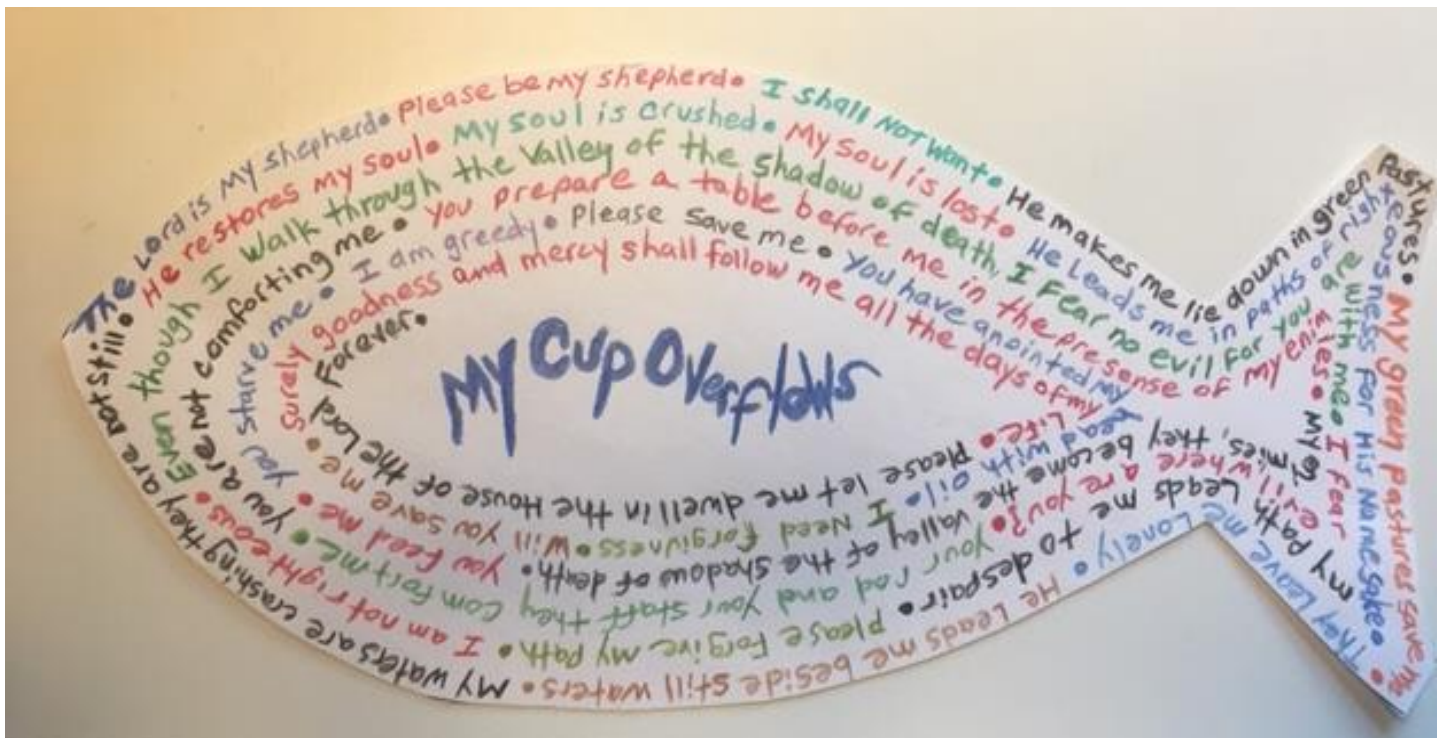 The Lord is My shepherd • Please be my shepherd • I shall NOT want • He makes me lie down in green Pastures • My green pastures save me •
They Leave me Lonely • He Leads me beside still waters • My waters are crashing they are not still •
He restores my soul • My soul is crushed • My soul is lost • He Leads me in paths of righteousness for His Name sake •
my path Leads me to despair • please forgive my path • I am not righteous •
Even though I walk through the Valley of the shadow of death, I Fear no evil for you are with me • I fear
evil, where are you? • your rod and your staff they comfort me • you are not comforting me •
You prepare a table before me in the presense of my enimies • My
enimies, they become the valley of the shadow of death • you feed me • you starve me •
I am greedy • Please save me • You have anointed my head with oil •
I Need forgivness • Will you save me •
Surely goodness and mercy shall follow me all the days of my Life •
Please let me dwell in the House of the Lord Forever •
My Cup Overflows